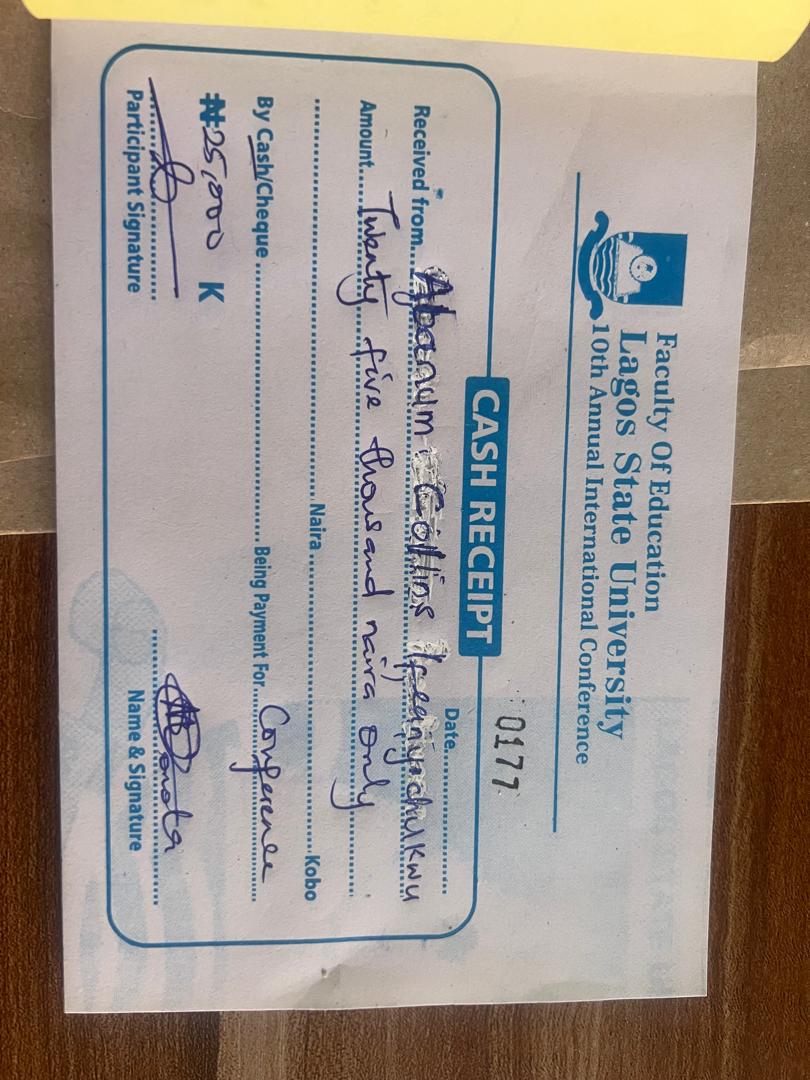 Faculty Of Education
Lagos State University
10th Annual International Conference
0177
CASH RECEIPT
Date
Received from Agbanum Collins Ifeanyichukwu
Amount Twenty five thousand naira only
Naira Kobo
By Cash/Cheque Being Payment For Conference
₦25,000 K
Participant Signature Name & Signature